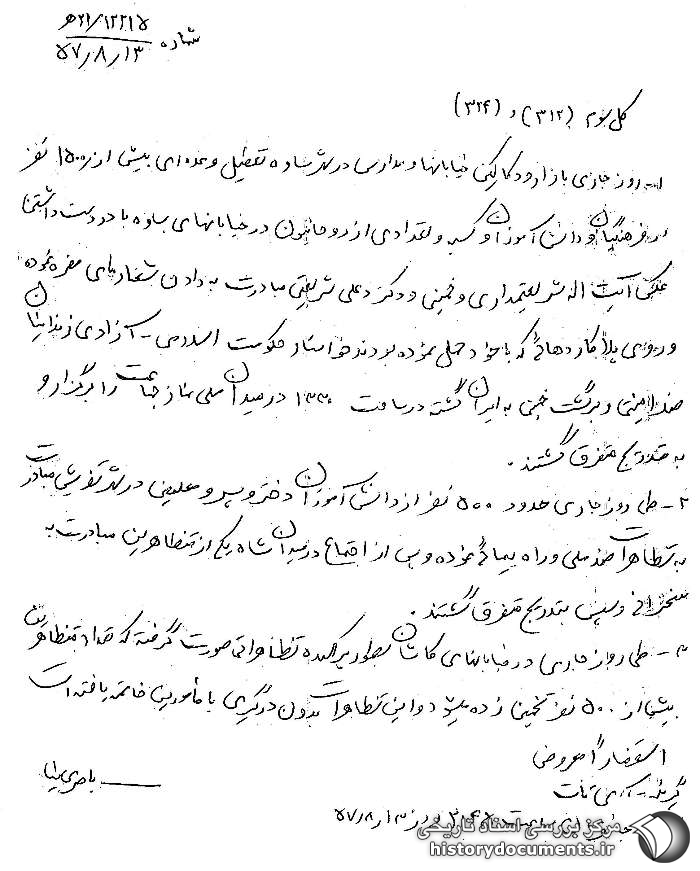 شماره ۲۱/۱۲۲۱۵ه
۵۷/۸/۱۳
کل سوم (۳۱۲) و (۳۲۴)
روز جاری بازار و دکاکین خیابانها و مدارس در شهر ساوه تعطیل و عده‌ای بیش از ۱۵۰۰ نفر
از فرهنگیان و دانش آموزان و کسبه و تعدادی از روحانیون در خیابانهای ساوه با در دست داشتن
عکس آیت اله شریعتمداری و خمینی و دکتر علی شریعتی مبادرت به دادن شعارهای مضره نموده
و روی پلاکاردهائی که با خود حمل نموده بودند خواستار حکومت اسلامی - آزادی زندانیان
ضد امنیتی و برگشت خمینی به ایران گشته در ساعت ۱۳۳۰ در میدان ملی نماز جماعت را برگزار و
به تدریج متفرق گشتند.
۲- طی روز جاری حدود ۵۰۰ نفر از دانش آموزان دختر و پسر و معلمین در شهر تفرش مبادرت
به تظاهرات ضد ملی و راه پیمائی نموده و پس از اجتماع در میدان شاه یکی از متظاهرین مبادرت به
سخنرانی و سپس بتدریج متفرق گشتند.
۳- طی روز جاری در خیابانهای کاشان بطور پراکنده تظاهراتی صورت گرفته که تعداد متظاهرین
بیش از ۵۰۰ نفر تخمین زده میشود و این تظاهرات بدون درگیری با مأمورین خاتمه یافته است
استحضاراً معروض
گیرنده
روز ۵۷/۸/۱۳
مرکز بررسی اسناد تاریخی
historydocuments.ir